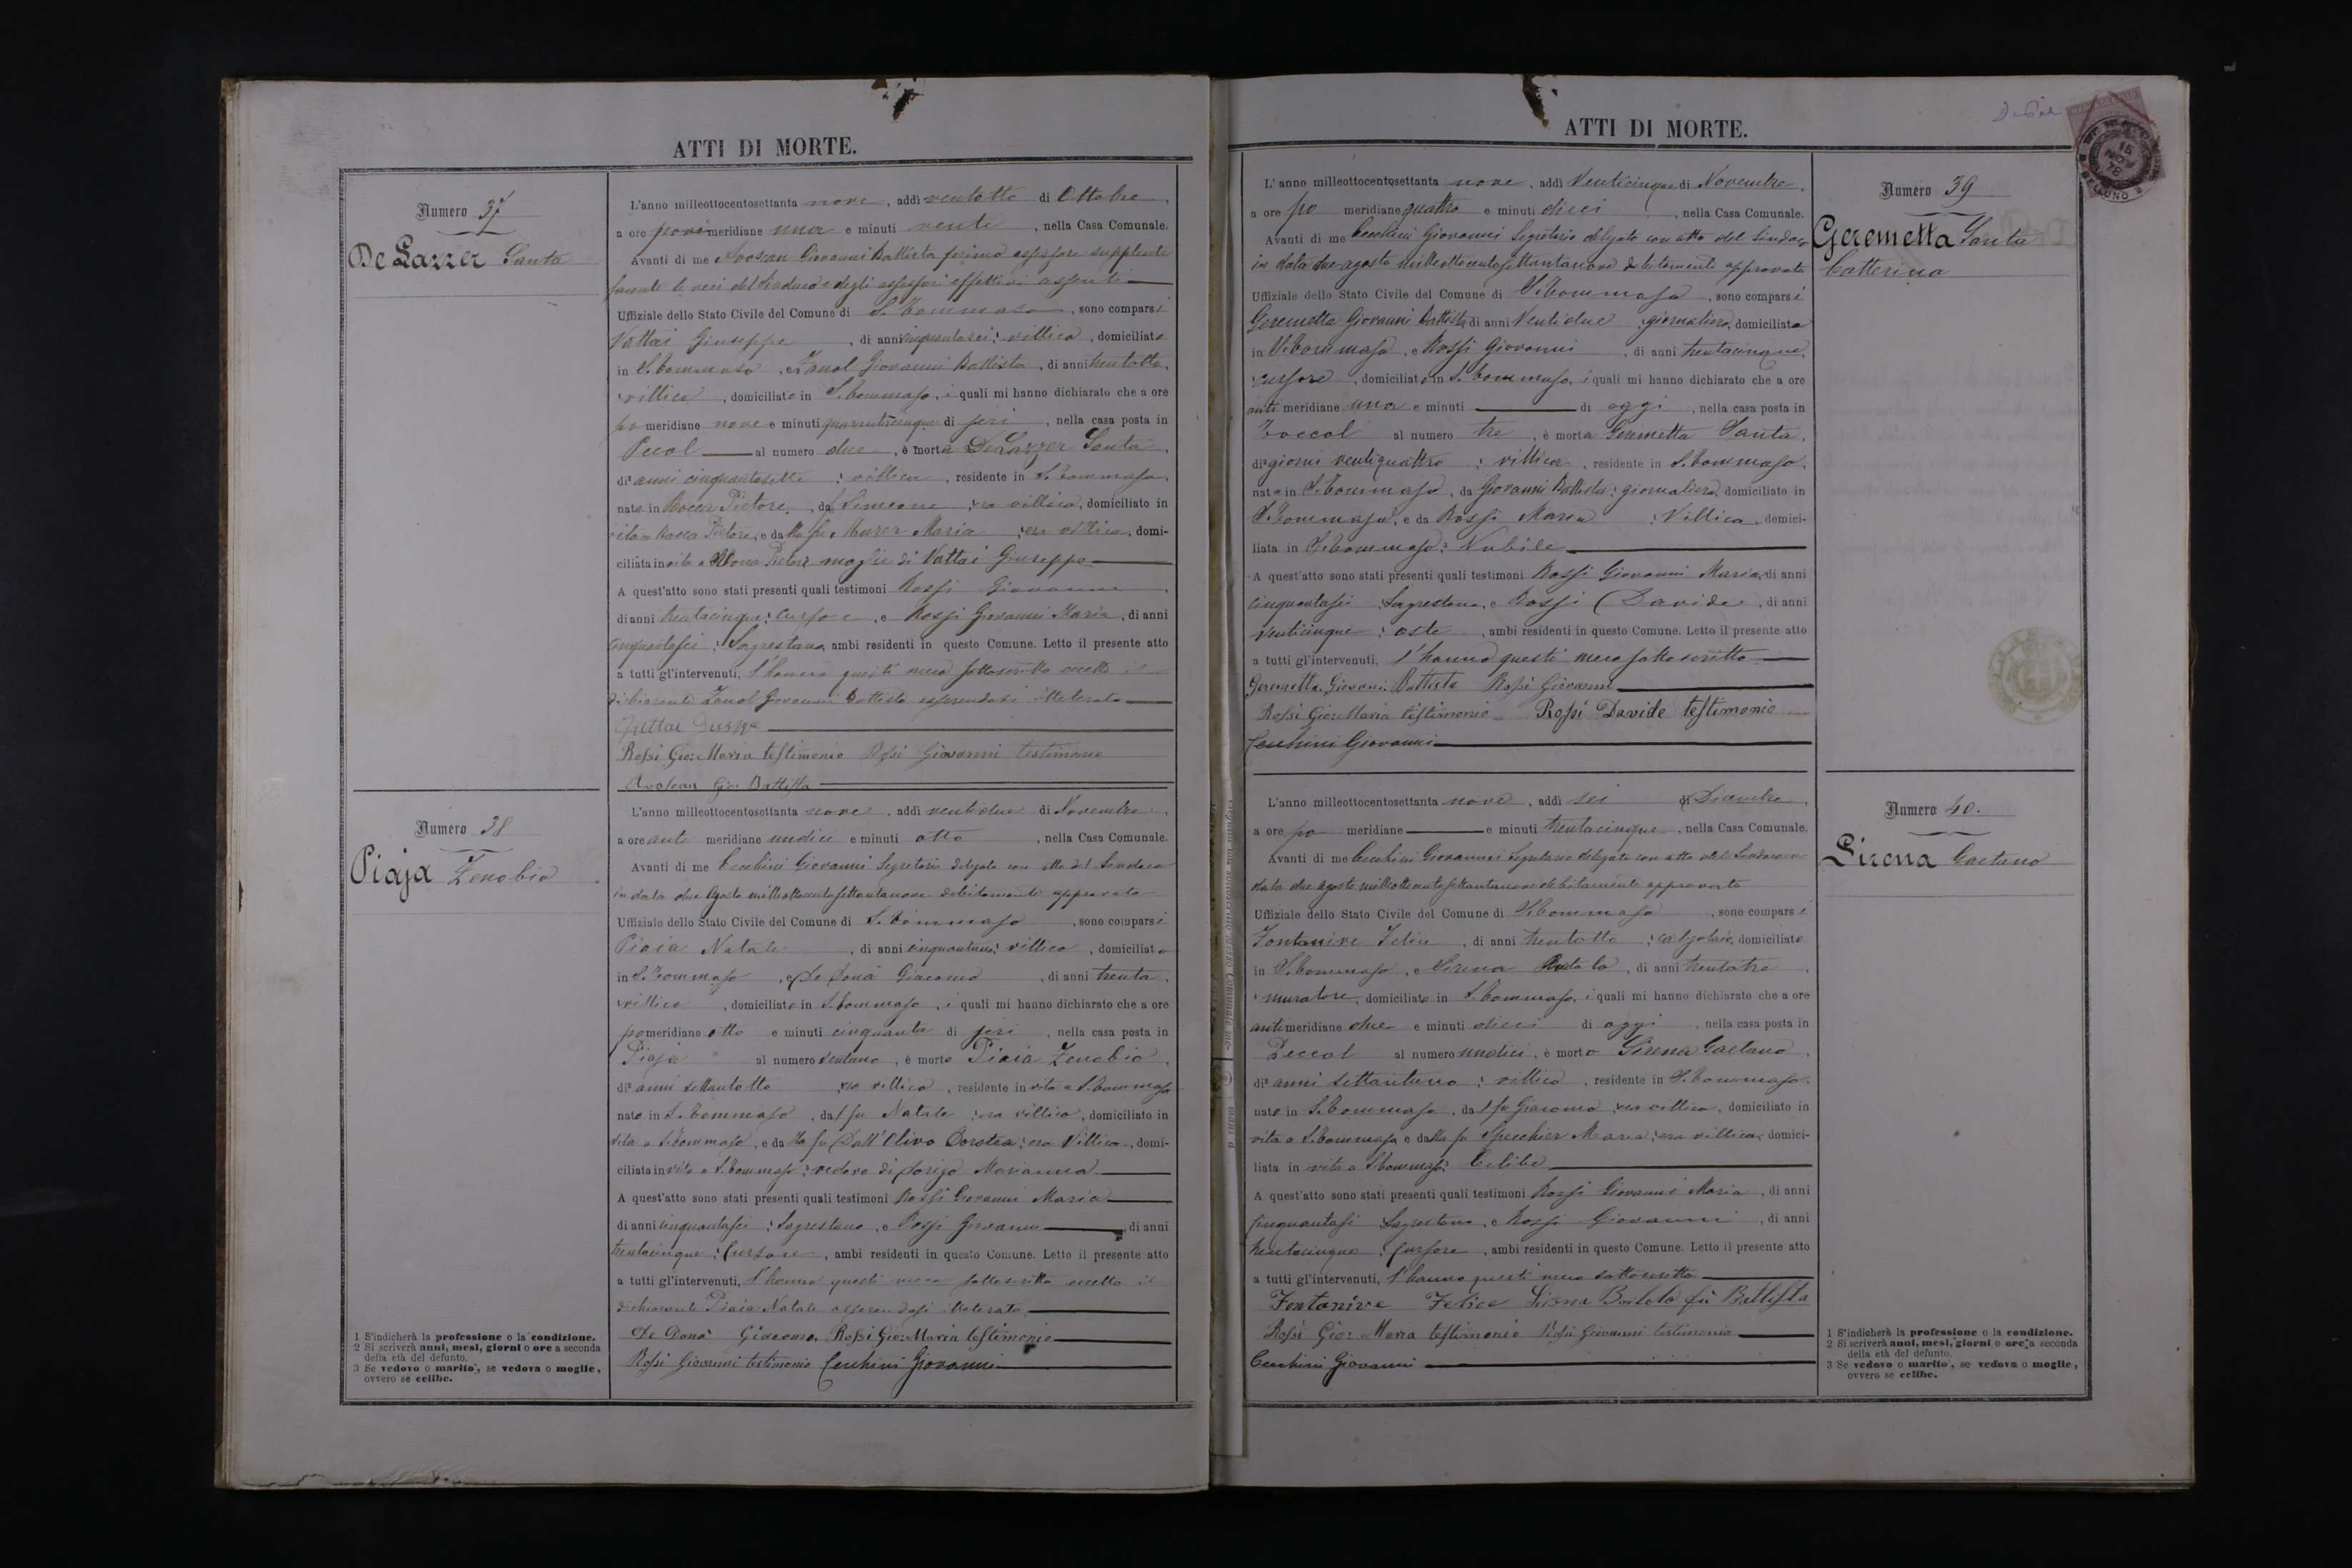 ATTI DI MORTE.
Numero 37
De Lazzer Santa
L'anno milleottocentosettanta nove, addì ventotto di Ottobre,
a ore pomeridiane una e minuti venti, nella Casa Comunale.
Avanti di me Giovanni Battista primo assessore supplente
facente le veci del Sindaco e degli assessori effettivi assenti
Uffiziale dello Stato Civile del Comune di S. Tommaso, sono comparsi
Vattai Giuseppe, di anni cinquantasei; villico, domiciliato
in S. Tommaso, e Zanol Giovanni Battista, di anni trentotto,
villico, domiciliato in S. Tommaso, i quali mi hanno dichiarato che a ore
po meridiane nove e minuti quarantacinque di jeri, nella casa posta in
Pecol al numero due, è morta De Lazzer Santa,
di² anni cinquantasette; villica, residente in S. Tommaso,
nata in Rocca Pietore, dal fu Simeone; era villico, domiciliato in
vita a Rocca Pietore, e dalla fu Murer Maria; era villica, domi-
ciliata in vita a Rocca Pietore moglie di Vattai Giuseppe
A quest'atto sono stati presenti quali testimoni Rossi Giovanni,
di anni trentacinque; cursore, e Rossi Giovanni Maria, di anni
cinquantasei; Sagrestano, ambi residenti in questo Comune. Letto il presente atto
a tutti gl'intervenuti, l'hanno questi meco sottoscritto eccetto il
dichiarante Zanol Giovanni Battista essendosi illetterato
Rossi Gio: Maria testimonio Rossi Giovanni testimonio
Gio: Battista
Numero 38
Piaja Zenobio
L'anno milleottocentosettanta nove, addì ventidue di Novembre,
a ore anti meridiane undici e minuti otto, nella Casa Comunale.
Avanti di me Cecchini Giovanni Segretario delegato con atto del Sindaco
in data due Agosto milleottocentosettantanove debitamente approvato
Uffiziale dello Stato Civile del Comune di S. Tommaso, sono comparsi
Piaia Natale, di anni cinquantuno; villico, domiciliato
in S. Tommaso, e De Donà Giacomo, di anni trenta,
villico, domiciliato in S. Tommaso, i quali mi hanno dichiarato che a ore
pomeridiane otto e minuti cinquanta di jeri, nella casa posta in
Piaja al numero ventuno, è morto Piaia Zenobio,
di² anni settantotto era villico, residente in vita a S. Tommaso
nato in S. Tommaso, dal fu Natale; era villico, domiciliato in
vita a S. Tommaso, e dalla fu Dall'Olivo Dorotea; era Villica, domi-
ciliata in vita a S. Tommaso; vedovo di Sorigo Marianna
A quest'atto sono stati presenti quali testimoni Rossi Giovanni Maria
di anni cinquantasei; Sagrestano, e Rossi Giovanni, di anni
trentacinque; Cursore, ambi residenti in questo Comune. Letto il presente atto
a tutti gl'intervenuti, l'hanno questi meco sottoscritto eccetto il
dichiarante Piaia Natale essendosi illetterato
De Donà Giacomo, Rossi Gio: Maria testimonio
Rossi Giovanni testimonio Cecchini Giovanni
1 S'indicherà la professione o la condizione.
2 Si scriverà anni, mesi, giorni o ore a seconda
della età del defunto.
3 Se vedovo o marito, se vedova o moglie,
ovvero se celibe.
ATTI DI MORTE.
15
NOV
78
BELLUNO
Numero 39
Geremetta Santa
Catterina
L'anno milleottocentosettanta nove, addì Venticinque di Novembre,
a ore po meridiane quattro e minuti dieci, nella Casa Comunale.
Avanti di me Cecchini Giovanni Segretario delegato con atto del Sindaco
in data due agosto milleottocentosettantanove debitamente approvato
Uffiziale dello Stato Civile del Comune di S. Tommaso, sono comparsi
Geremetta Giovanni Battista di anni Ventidue; giornaliero, domiciliato
in S. Tommaso, e Rossi Giovanni, di anni trentacinque,
cursore, domiciliato in S. Tommaso, i quali mi hanno dichiarato che a ore
anti meridiane una e minuti di oggi, nella casa posta in
Toccol al numero tre, è morta Geremetta Santa,
di² giorni ventiquattro; villica, residente in S. Tommaso,
nata in S. Tommaso, da Giovanni Battista; giornaliero, domiciliato in
S. Tommaso, e da Rossi Maria; Villica, domici-
liata in S. Tommaso; Nubile
A quest'atto sono stati presenti quali testimoni Rossi Giovanni Maria, di anni
cinquantasei; Sagrestano, e Rossi Davide, di anni
venticinque; oste, ambi residenti in questo Comune. Letto il presente atto
a tutti gl'intervenuti, l'hanno questi meco sottoscritto
Geremetta Giovani Battista Rossi Giovanni
Rossi Gio: Maria testimonio Rossi Davide testimonio
Cecchini Giovanni
Numero 40.
Sirena Gaetano
L'anno milleottocentosettanta nove, addì sei di Dicembre,
a ore po meridiane e minuti trentacinque, nella Casa Comunale.
Avanti di me Cecchini Giovanni Segretario delegato con atto del Sindaco in
data due agosto milleottocentosettantanove debitamente approvato
Uffiziale dello Stato Civile del Comune di S. Tommaso, sono comparsi
Fontanive Felice, di anni trentotto; calzolaio, domiciliato
in S. Tommaso, e Sirena Bortolo, di anni trentatre,
muratore, domiciliato in S. Tommaso, i quali mi hanno dichiarato che a ore
antimeridiane due e minuti dieci di oggi, nella casa posta in
Peccol al numero undici, è morto Sirena Gaetano,
di² anni settantuno; villico, residente in S. Tommaso
nato in S. Tommaso, dal fu Giacomo era villico, domiciliato in
vita a S. Tommaso e dalla fu Specchier Maria; era villica, domici-
liata in vita a S. Tommaso; Celibe
A quest'atto sono stati presenti quali testimoni Rossi Giovanni Maria, di anni
cinquantasei Sagrestano, e Rossi Giovanni, di anni
trentacinque; Cursore, ambi residenti in questo Comune. Letto il presente atto
a tutti gl'intervenuti, l'hanno questi meco sottoscritto
Fontanive Felice Sirena Bortolo fù Battista
Rossi Gio: Maria testimonio Rossi Giovanni testimonio
Cecchini Giovanni
1 S'indicherà la professione o la condizione.
2 Si scriverà anni, mesi, giorni o ore a seconda
della età del defunto.
3 Se vedovo o marito, se vedova o moglie,
ovvero se celibe.